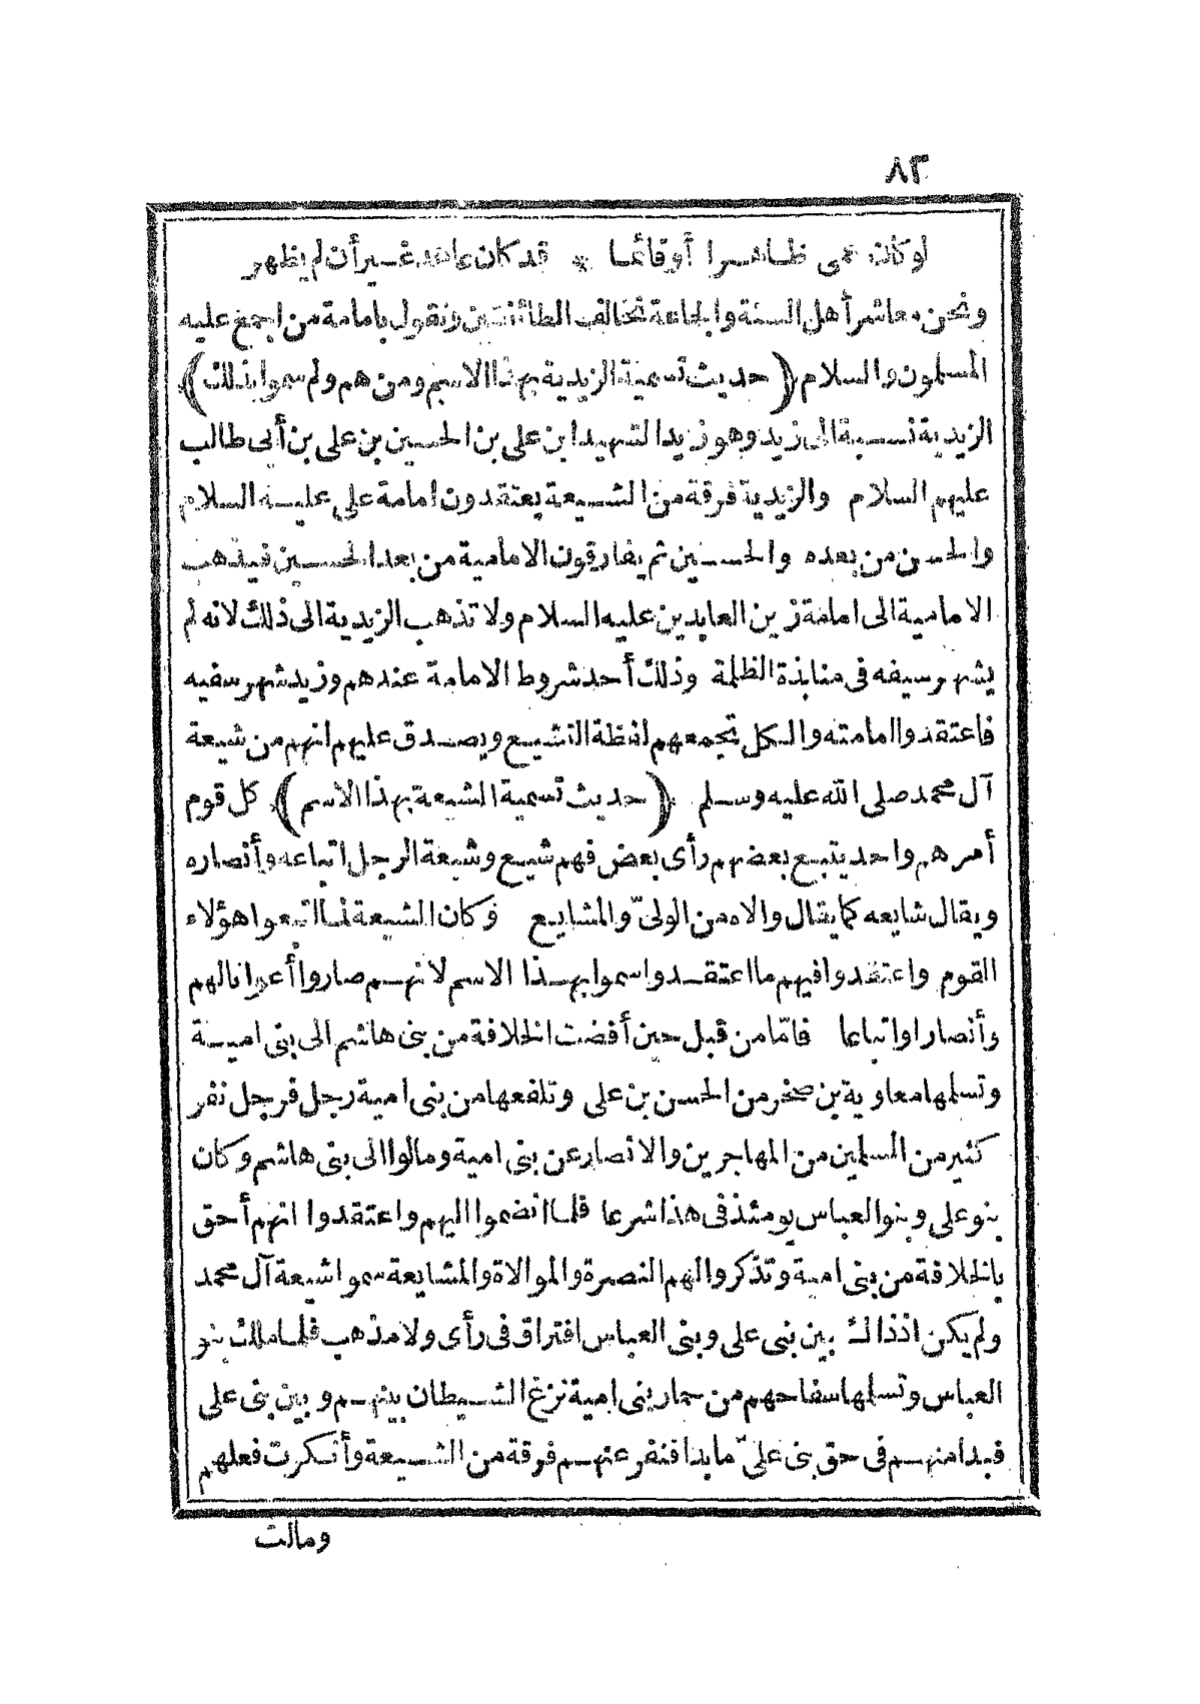 ٨٣
لو كان حمى ظاهرا أو قائما * قد كان عاهد غير أن لم يظهر
ونحن معاشر أهل السنة والجاعة نخالف الطائفتين ونقول بامامة من اجمع عليه
المسلمون والسلام (حديث تسمية الزيدية بهذا الاسم ومن هم ولم سموا بذلك)
الزيدية نسبة الى زيد وهو زيد الشهيد ابن على بن الحسين بن على بن أبى طالب
عليهم السلام والزيدية فرقة من الشيعة يعتقدون امامة على عليه السلام
والحسن من بعده والحسين ثم يفارقون الامامية من بعد الحسين فيذهب
الامامية الى امامة زين العابدين عليه السلام ولا تذهب الزيدية الى ذلك لانه لم
يشهر سيفه فى منابذة الظلمة وذلك أحد شروط الامامة عندهم وزيد شهر سفيه
فاعتقدوا امامته والكل تجمعهم لفظة التشيع ويصدق عليهم انهم من شيعة
آل محمد صلى الله عليه وسلم (حديث تسمية الشيعة بهذا الاسم) كل قوم
أمرهم واحد يتبع بعضهم رأى بعض فهم شيع وشيعة الرجل اتباعه وأنصاره
ويقال شايعه كما يقال والاه من الولىّ والمشايع وكان الشيعة لما اتبعوا هؤلاء
القوم واعتقدوا فيهم ما اعتقدوا سموا بهذا الاسم لانهم صاروا أعوانا لهم
وأنصارا واتباعا فامّا من قبل حين أفضت الخلافة من بنى هاشم الى بنى امية
وتسلمها معاوية بن صخر من الحسن بن على وتلقفها من بنى امية رجل فرجل نفر
كثير من المسلمين من المهاجرين والانصار عن بنى امية ومالوا الى بنى هاشم وكان
بنو على وبنو العباس يومئذ فى هذا شرعا فلما انضموا اليهم واعتقدوا انهم أحق
بالخلافة من بنى امية وتذكروا لهم النصرة والموالاة والمشايعة سموا شيعة آل محمد
ولم يكن اذ ذاك بين بنى على وبنى العباس افتراق فى رأى ولا مذهب فلما ملك بنو
العباس وتسلمها سفاحهم من حمار بنى امية نزغ الشيطان بينهم وبين بنى على
فبدا منهم فى حق بنى علىّ ما بدا فنفر عنهم فرقة من الشيعة وأنكرت فعلهم
ومالت